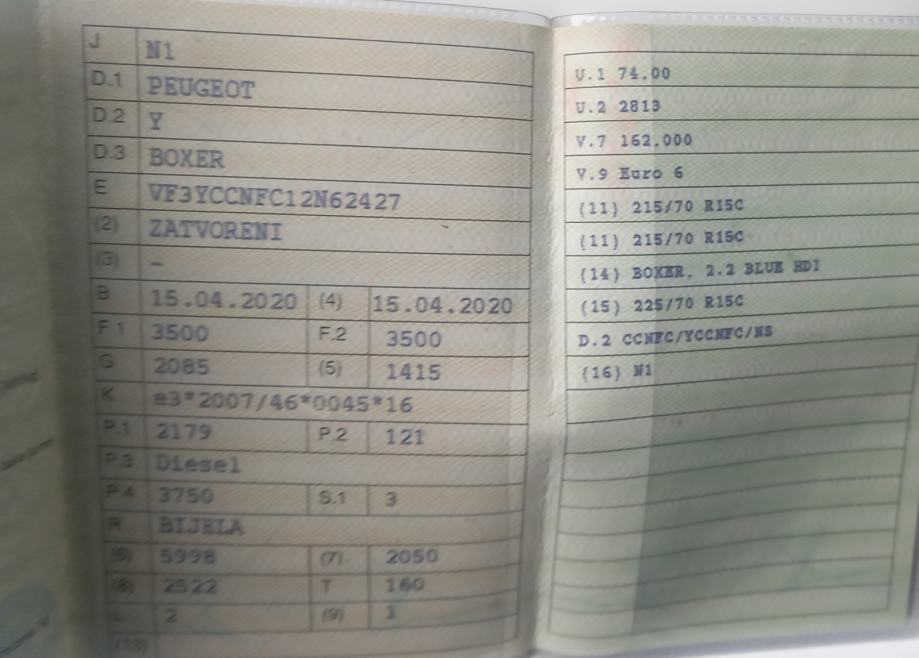 J N1
D.1 PEUGEOT
D.2 Y
D.3 BOXER
E VF3YCCNFC12N62427
(2) ZATVORENI
(3) –
B 15.04.2020 (4) 15.04.2020
F.1 3500 F.2 3500
G 2085 (5) 1415
K e3*2007/46*0045*16
P.1 2179 P.2 121
P.3 Diesel
P.4 3750 S.1 3
R BIJELA
(6) 5998 (7) 2050
(8) 2522 T 160
L 2 (9) 1
(13)
U.1 74.00
U.2 2813
V.7 162.000
V.9 Euro 6
(11) 215/70 R15C
(11) 215/70 R15C
(14) BOXER, 2.2 BLUE HDI
(15) 225/70 R15C
D.2 CCNFC/YCCNFC/NS
(16) N1